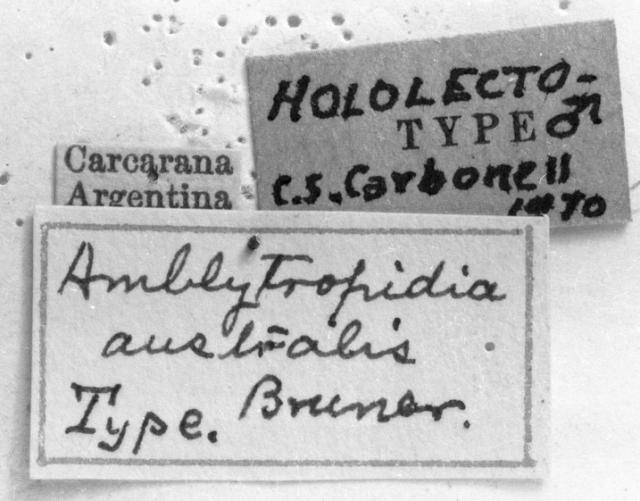 HOLOLECTO-
TYPE ♂
C.S. Carbonell
1970
Carcarana
Argentina
Amblytropidia
australis
Type. Bruner.